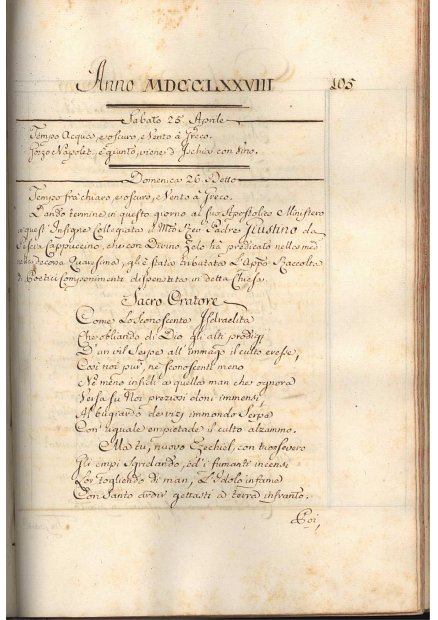 Anno MDCCLXXVIII 105
Sabato 25 Aprile
Tempo Acqueo, e oscuro, e Vento à Greco.
Gozzo Napolet.º, è giunto, viene d'Ischia con vino.
Domenica 26 Detto
Tempo frà chiaro, e oscuro, e Vento à Greco.
Dando termine in questo giorno al suo Apostolico Ministero
a quest' Insigne Collegiata il Mto Revdo Padre Giustino da
Cappuccino, che con Divino Zelo hà predicato nella med
decorsa Quaresima, gl' è stato tributato l'App. Raccolta
di Poetici Componimenti dispensata in detta Chiesa.
Sacro Oratore
Come lo Sconoscente Isdraelita
Che obliando di Dio gli alti prodigj
D'un vil Serpe all' immago il culto eresse,
Così noi pur, nè Sconoscenti meno
Nè meno infidi a quella man che ognora
Versa su Noi preziosi doni immensi,
Al bugiardo de vizj immondo Serpe
Con uguale empietade il culto alzammo.
Ma tu, nuovo Ezechiel, con tuon severo
Gli empi Sgridando, ed i fumanti incensi
Lor togliendo di man, L'Idolo infame
Con Santo ardir gettasti a terra infranto.
Poi,